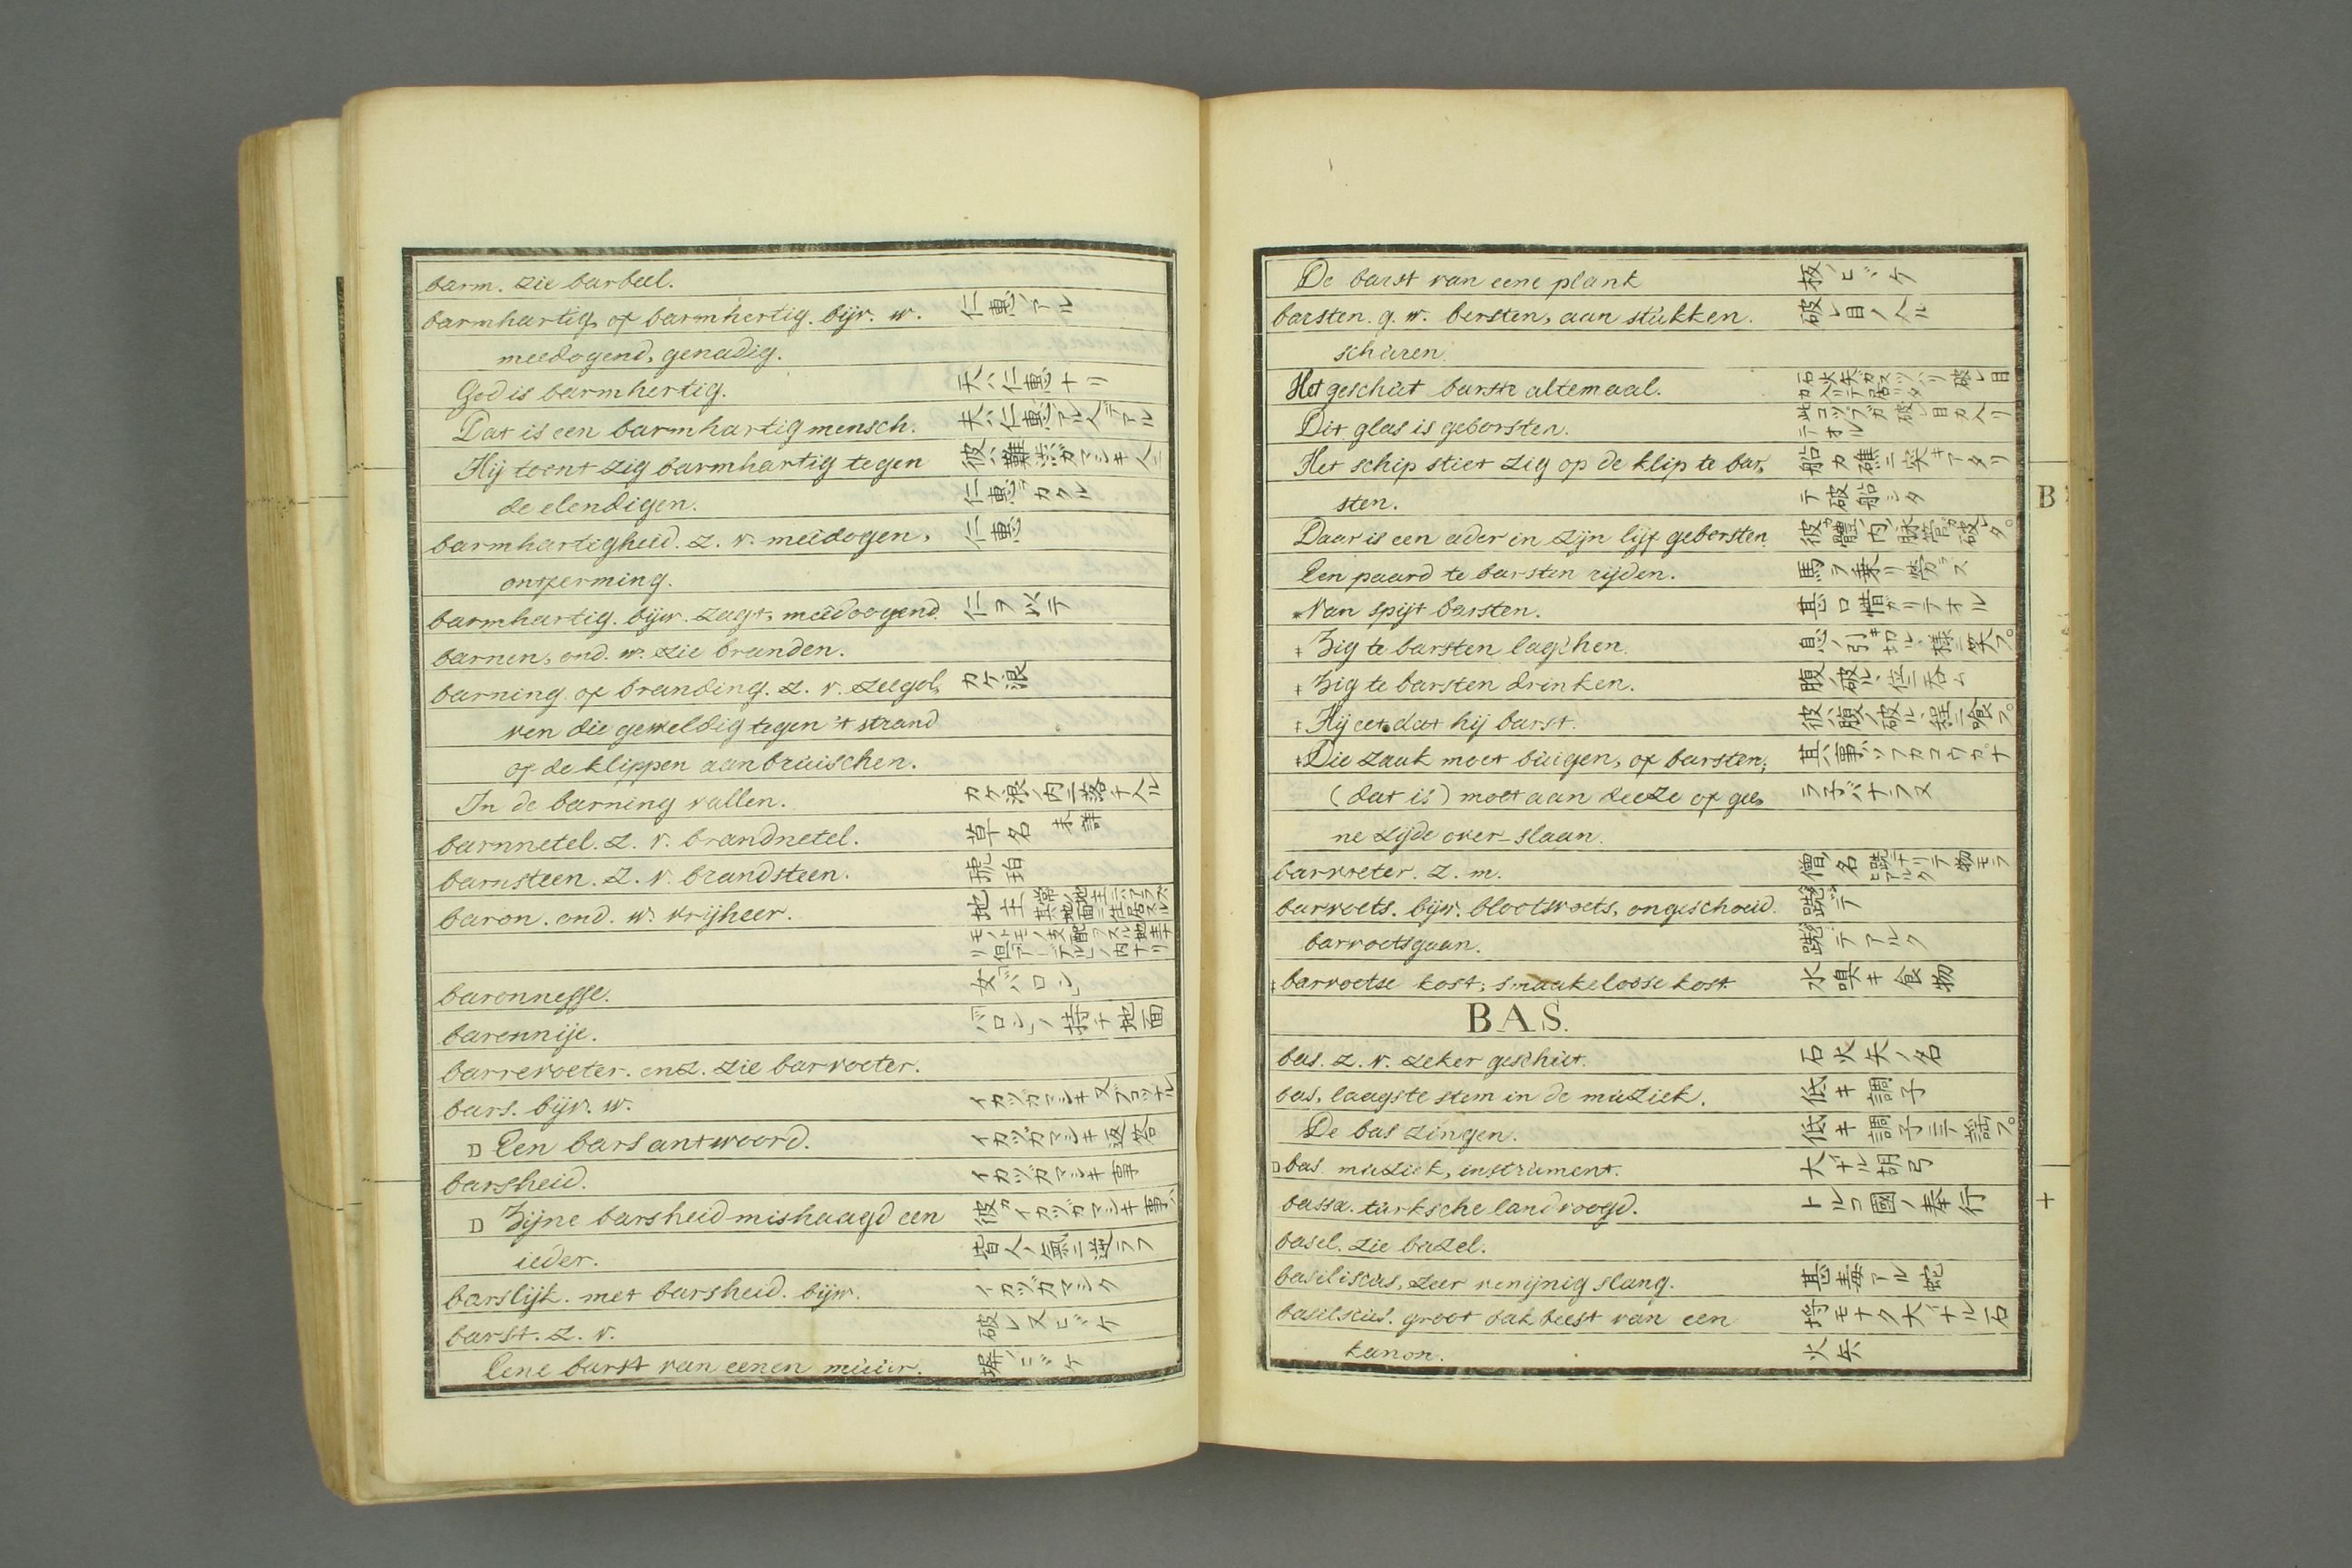 barm. zie barbeel.
barmhartig, of barmhertig. bijv. w. 仁惠ノアル
meedogend, genadig.
God is barmhertig. 天ハ仁惠ナリ
Dat is een barmhartig mensch. 夫ハ仁惠アル人デアル
Hij toont zig barmhartig tegen 彼ハ難渋ガマシキ人ニ
de elendigen. 仁惠ヲカクル
barmhartigheid. z. v. meêdogen, 仁惠
ontferming.
barmhartig. bijw. zagt, meêdoogend. 仁ヲ以テ
barnen, ond. w. zie branden.
barning of branding. z. v. zeegol, カケ浪
ven die geweldig tegen 't strand
of de klippen aanbruischen.
In de barning vallen. カケ浪ノ内ニ落チ入ル
barnnetel. z. v. brandnetel. 草名 未詳
barnsteen. z. v. brandsteen. 琥珀
baron. ond. w. vrijheer. 地主
baronnesse. 女「バロン」
baronnije. 「バロン」ノ持チ地面
barrevoeter. enz. zie barvoeter.
bars. bijv. w. イカツガマシキ又ブコツナル
Een bars antwoord. イカツガマシキ返答
barsheid. イカツガマシキ事
Zijne barsheid mishaagd een 彼ガイカツガマシキ事ハ
ieder. 皆人ノ氣ニ逆ラフ
barslijk. met barsheid. bijw. イカツガマシク
barst. z. v. 破レ又ヒヾケ
Eene barst van eenen muur. 塀ノヒヾケ
De barst van eene plank 板ノヒヾケ
barsten. g. w. bersten, aan stukken. 破レ目ノ入ル
schuren.
Het geschut barstte altemaal.
Dit glas is geborsten. 此コップガ破レ目カ入リテオル
Het schip stiet zig op de klip te bar, 船カ礁ニ突キアタリ
sten. テ破船シタ
Daar is een ader in zijn lijf geborsten. 彼カ體ノ内ノ脉管カ破レタ。
Een paard te barsten rijden. 馬ヲ乗リ労ラス
Van spijt barsten. 甚口惜ガリテオル
Zig te barsten lagchen. 息ノ引キ切ルヽ様ニ笑フ。
Zig te barsten drinken. 腹ノ破ルヽ位ニ呑ム
Hij eet dat hij barst. 彼ハ腹ノ破ルヽ程ニ喰フ。
Die zaak moet buigen, of barsten, 其事ハツフカコウカナ
(dat is) moet aan deeze of gee, ラ子バナラヌ
ne zijde over-slaan.
barvoeter. z. m. 僧ノ名
barvoets. bijw. blootsvoets, ongeschoeid. 跣ニテ
barvoetsgaan. 跣ニテアルク
barvoetse kost, smaakeloose kost. 水嗅キ食物
BAS.
bas. z. v. zeker geschut. 石火矢ノ名
bas, laagste stem in de muziek. 低キ調子
De bas zingen. 低キ調子ニテ謡フ。
bas. muziek, instrument. 大ナル胡弓
bassa. turksche landvoogd. トルコ國ノ奉行
basel. zie bazel.
basiliscus, zeer venijnig slang. 甚毒アル蛇
basiliscus. groot bakbeest van een 埒モナク大ナル石
kanon. 火矢
B